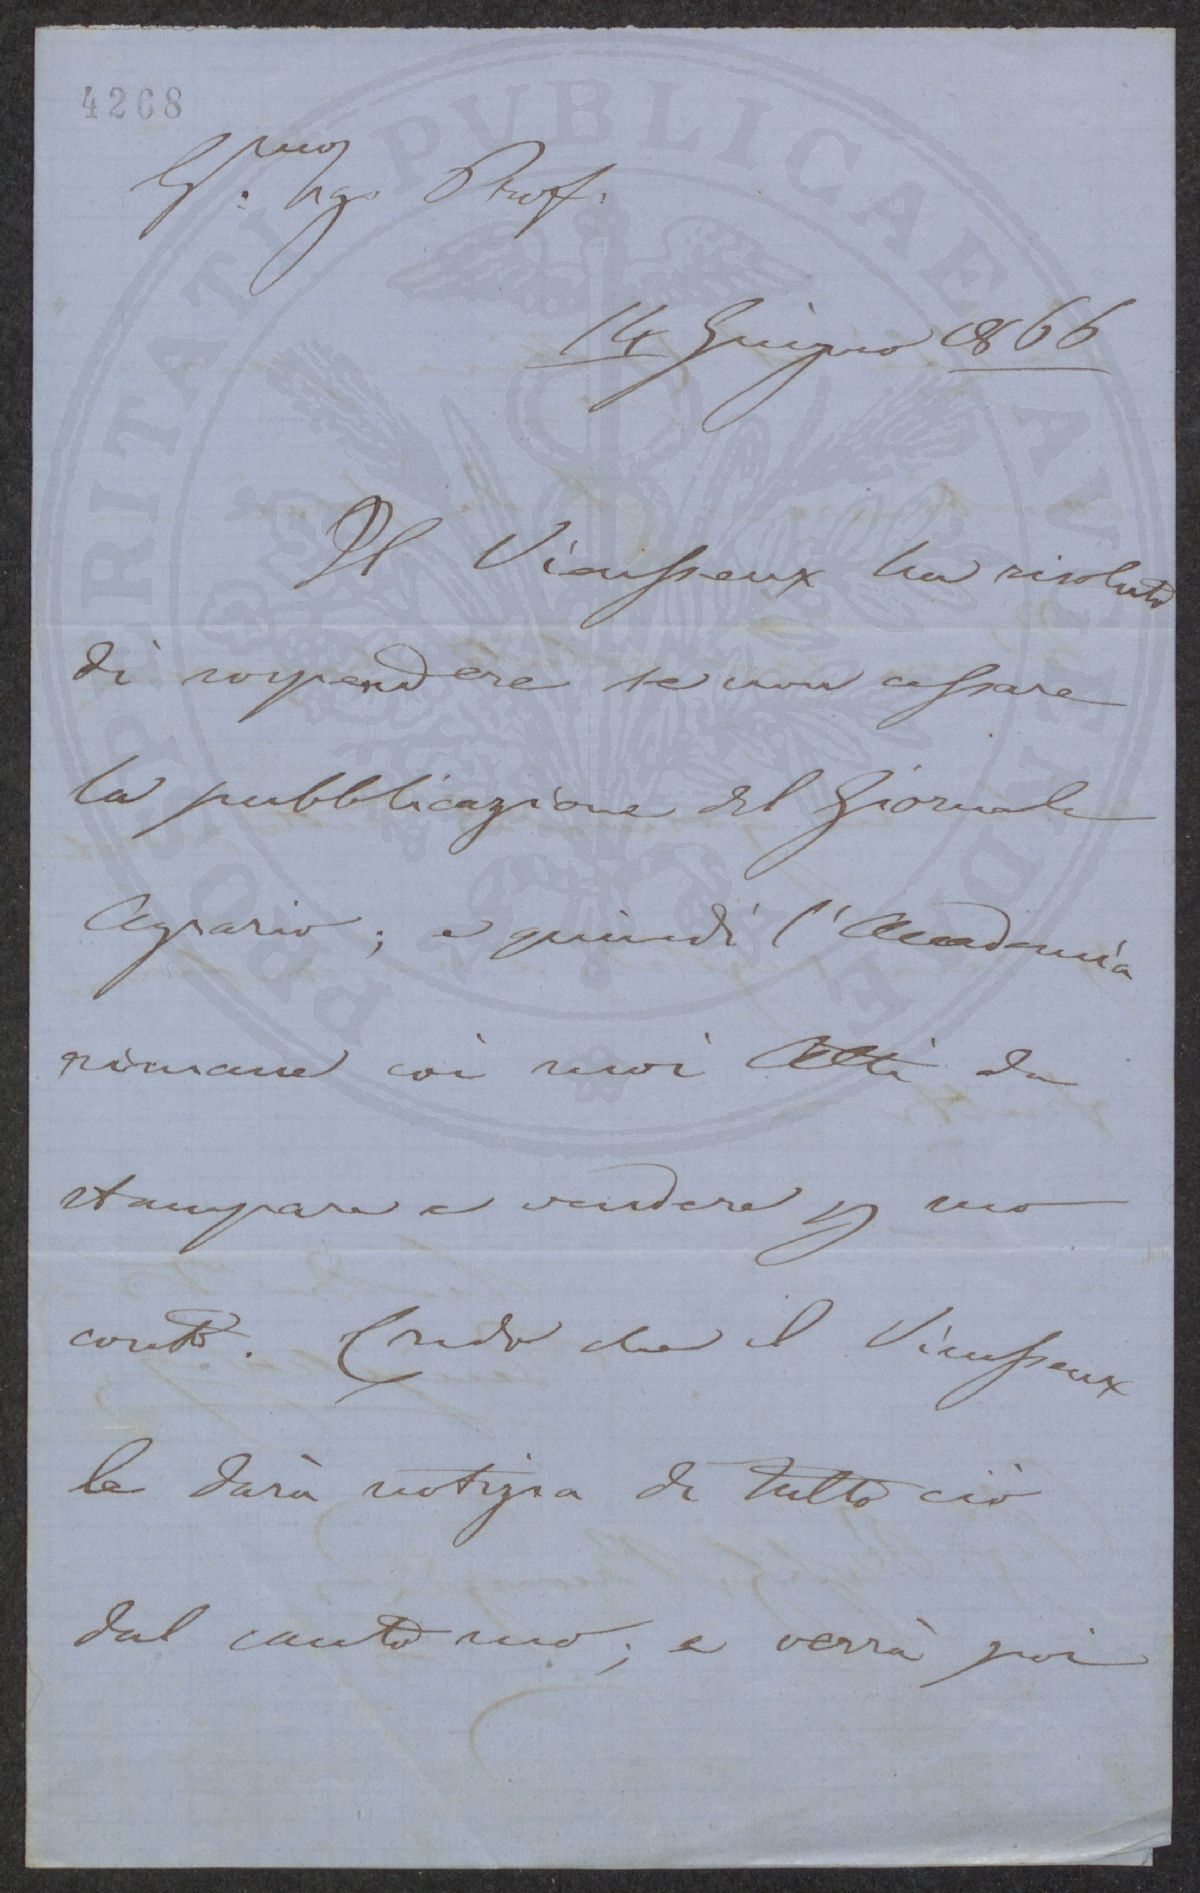 4268
Il Vieusseux ha risoluto
di sospendere se non cessare
la pubblicazione del Giornale
Agrario; e quindi l'Accademia
rimane coi suoi Atti da
stampare e vendere p suo
conto. Credo che il Vieusseux
le darà notizia di tutto ciò
dal canto suo; e verrà poi
14 Giugno 866
Prof.
PROSPERITATI PVBLICAE AVGENDAE